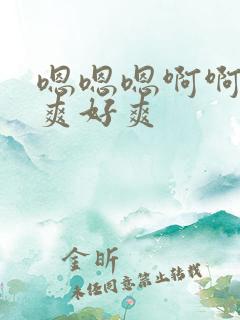 嗯嗯嗯啊啊
爽好爽
金昕
未经同意禁止转载